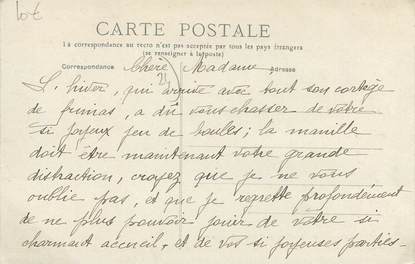 10€
CARTE POSTALE
La correspondance au recto n'est pas acceptée par tous les pays étrangers
(se renseigner à la poste)
Correspondance Adresse
Chère Madame
L'hiver, qui arrive avec tout son cortège
de frimas, a dû vous chasser de votre
si joyeux jeu de boules; la manille
doit être maintenant votre grande
distraction, croyez que je ne vous
oublie pas, et que je regrette profondément
de ne plus pouvoir jouir de votre si
charmant accueil, et de vos si joyeuses parties-